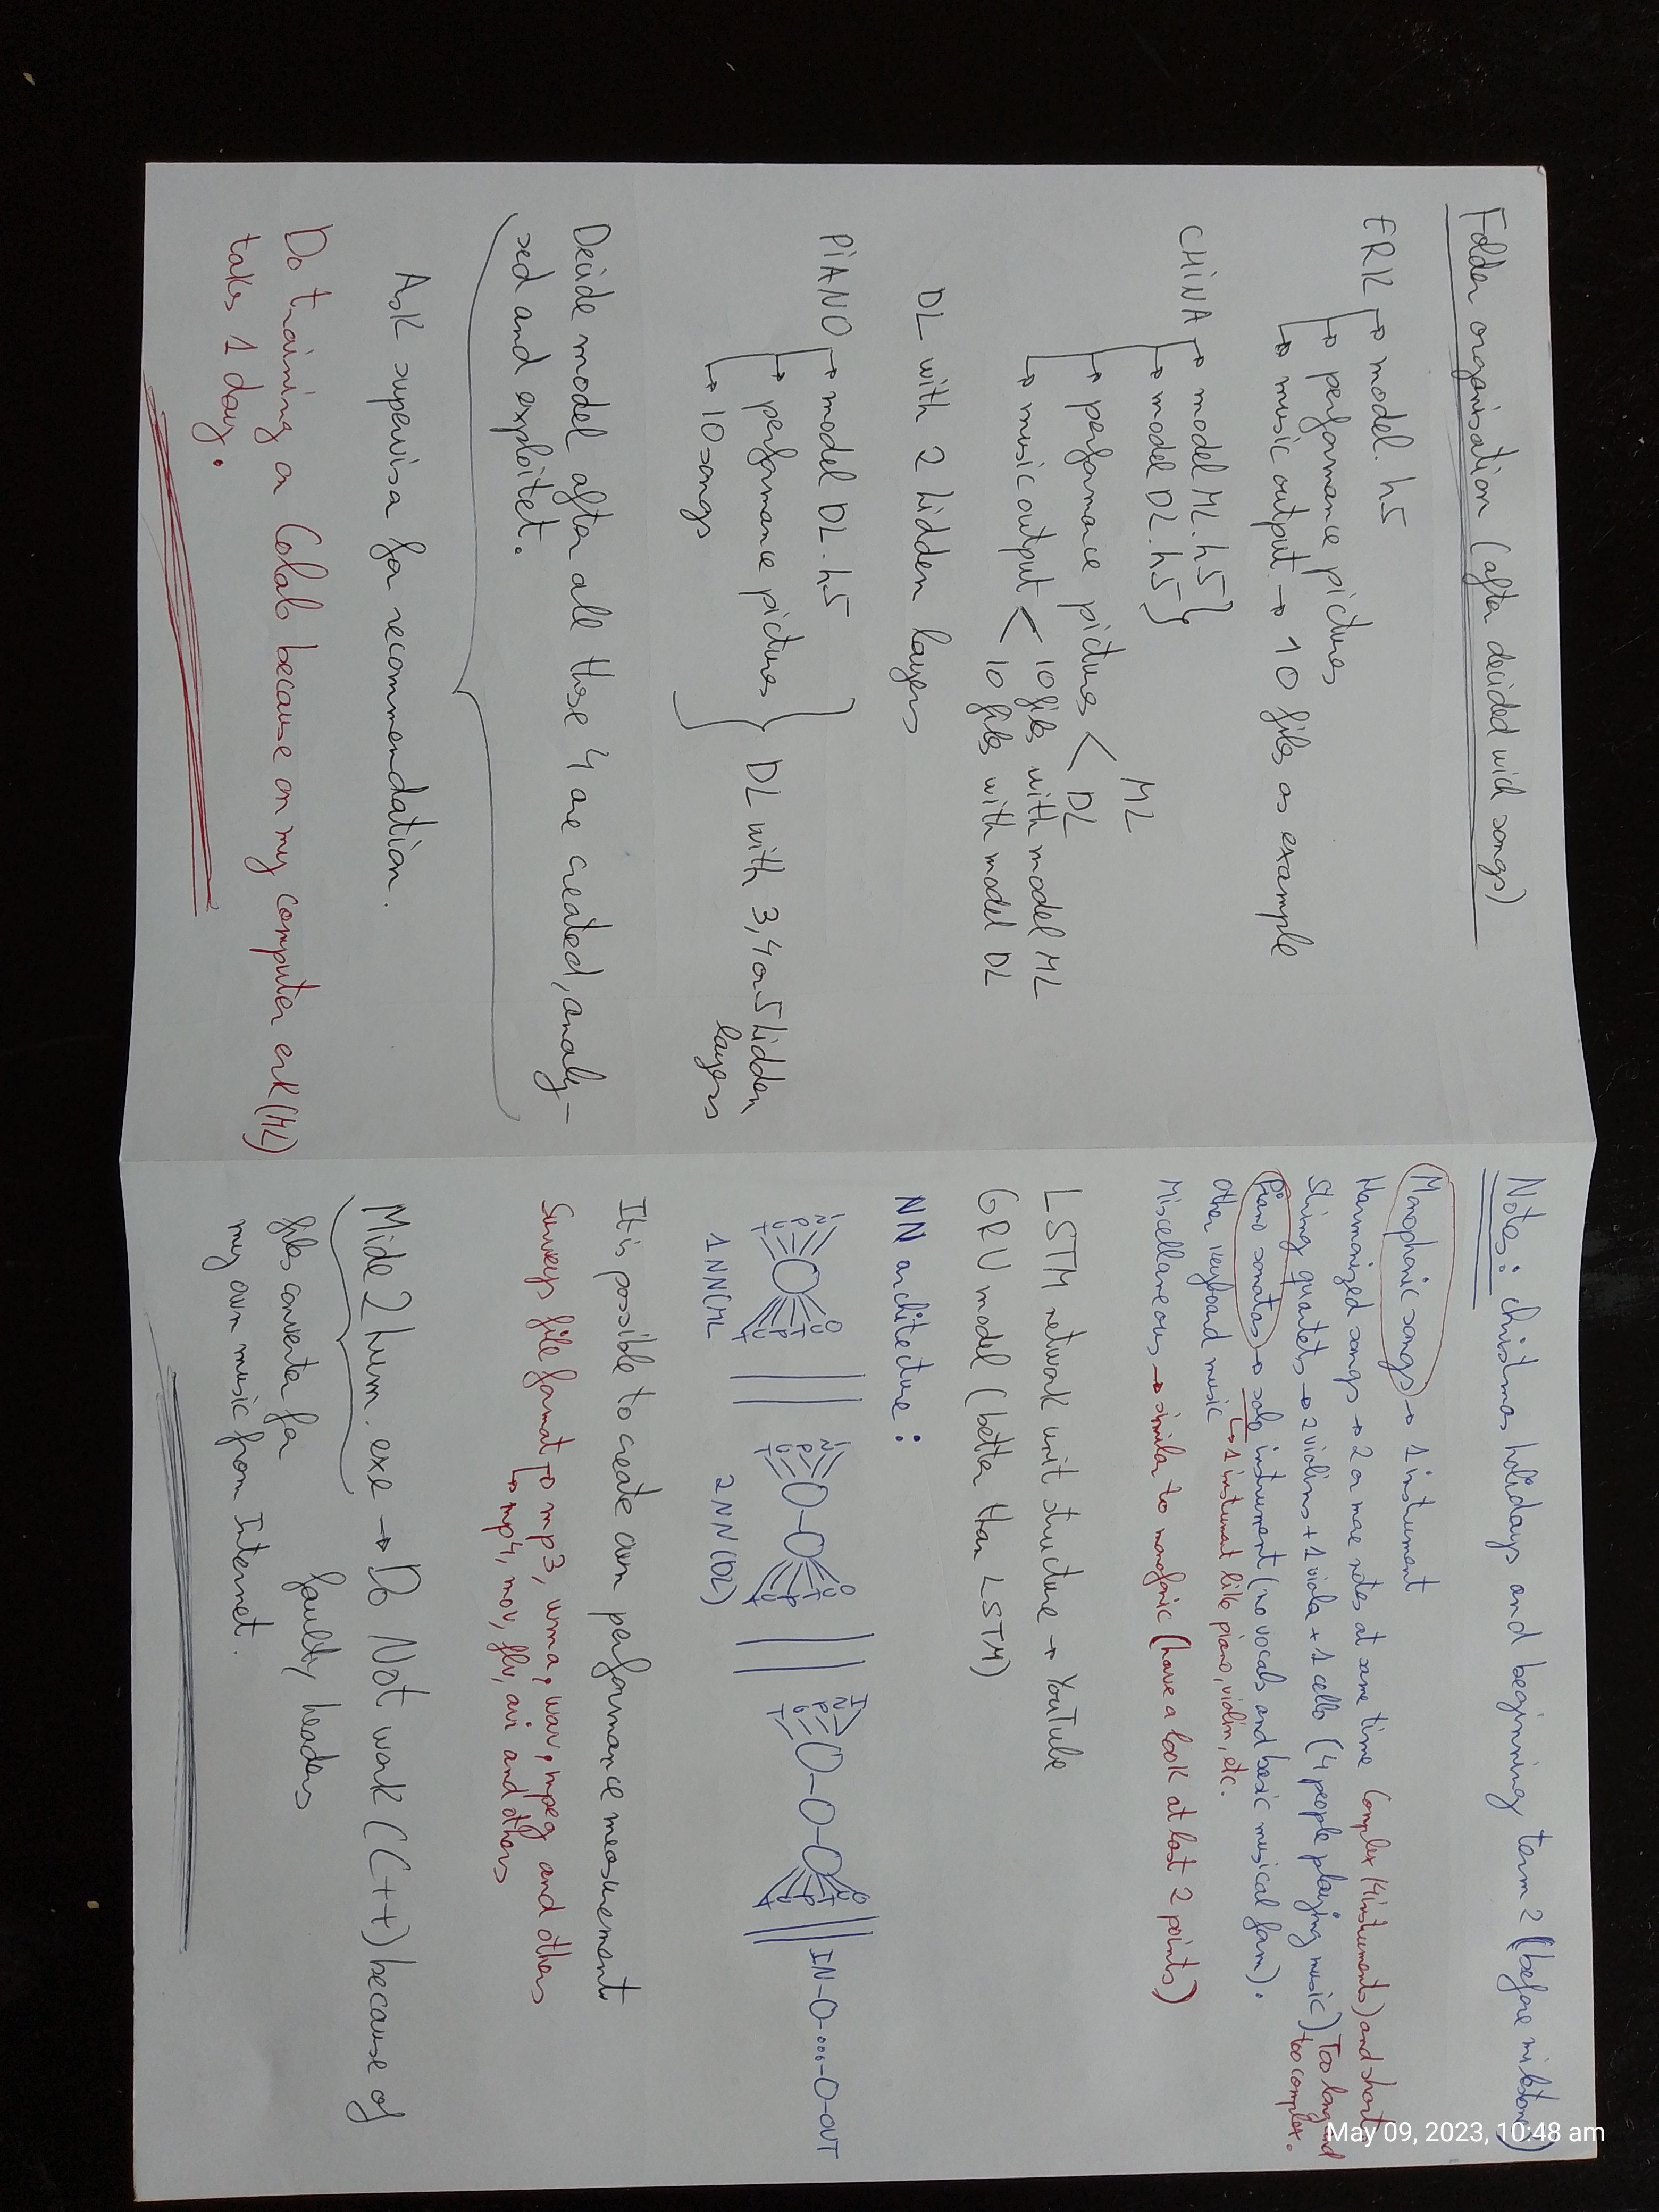 Folder organisation (after decided wich songs)
ERK → model.h5
→ performance pictures
→ music output → 10 files as example
CHiNA → model ML.h5}
→ model DL.h5}
→ performance pictures < ML
DL
→ music output < 10 files with model ML
10 files with model DL
DL with 2 hidden layers
PiANO → model DL.h5
→ performance pictures } DL with 3,4 or 5 hidden
layers
→ 10 songs
Decide model after all these 4 are created, analy-
sed and exploitet.
Ask supervisor for recommendation.
Do training on Colab because on my computer erk (ML)
takes 1 day.
Notes: christmas holidays and beginning term 2 (before milestone)
Monophonic songs → 1 instrument
Harmonized songs → 2 or more notes at same time Complex (4 instruments) and short
String quartets → 2 violins + 1 viola + 1 cello (4 people playing music) Too long and
too complex.
Piano sonatas → solo instrument (no vocals and basic musical form).
→ 1 instrument like piano, violin, etc.
Other keyboard music
Miscellaneous → similar to monofonic (have a look at last 2 points)
LSTM network unit structure → YouTube
GRU model (better than LSTM)
NN architecture:
INPUT O OUTPUT || INPUT O-O OUTPUT || INPUT O-O-O OUTPUT || IN-O-...-O-OUT
1NN(ML
2NN(DL)
It is possible to create own performance measurement
Surveys file format → mp3, wma, wav, mpeg and others
→ mp4, mov, flv, avi and others
Mide2hum.exe → Do Not work (C++) because of
faulty headers
files converter for
my own music from Internet.
May 09, 2023, 10:48 am